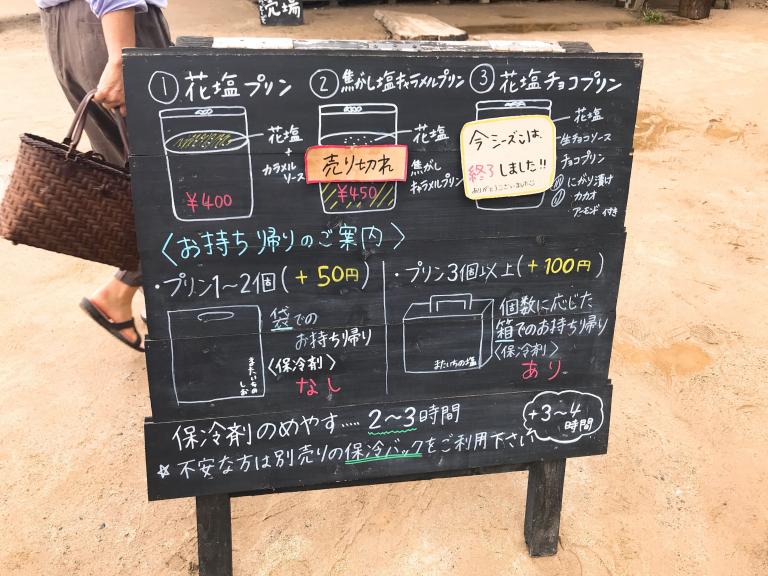 売場
① 花塩プリン
花塩
+
カラメル
ソース
¥400
② 焦がし塩キャラメルプリン
花塩
売り切れ
焦がし
キャラメルプリン
¥450
③ 花塩チョコプリン
花塩
生チョコソース
チョコプリン
にがり漬け
カカオ
アーモンド 付き
今シーズンは、
終了しました!!
ありがとうございました
〈お持ち帰りのご案内〉
・プリン1〜2個(+50円)
袋での
お持ち帰り
〈保冷剤〉
なし
またいちの
しお
・プリン3個以上(+100円)
個数に応じた
箱でのお持ち帰り
〈保冷剤〉
あり
またいちの塩
保冷剤のめやす..... 2〜3時間
☆不安な方は別売りの保冷バックをご利用下さい
+3〜4
時間